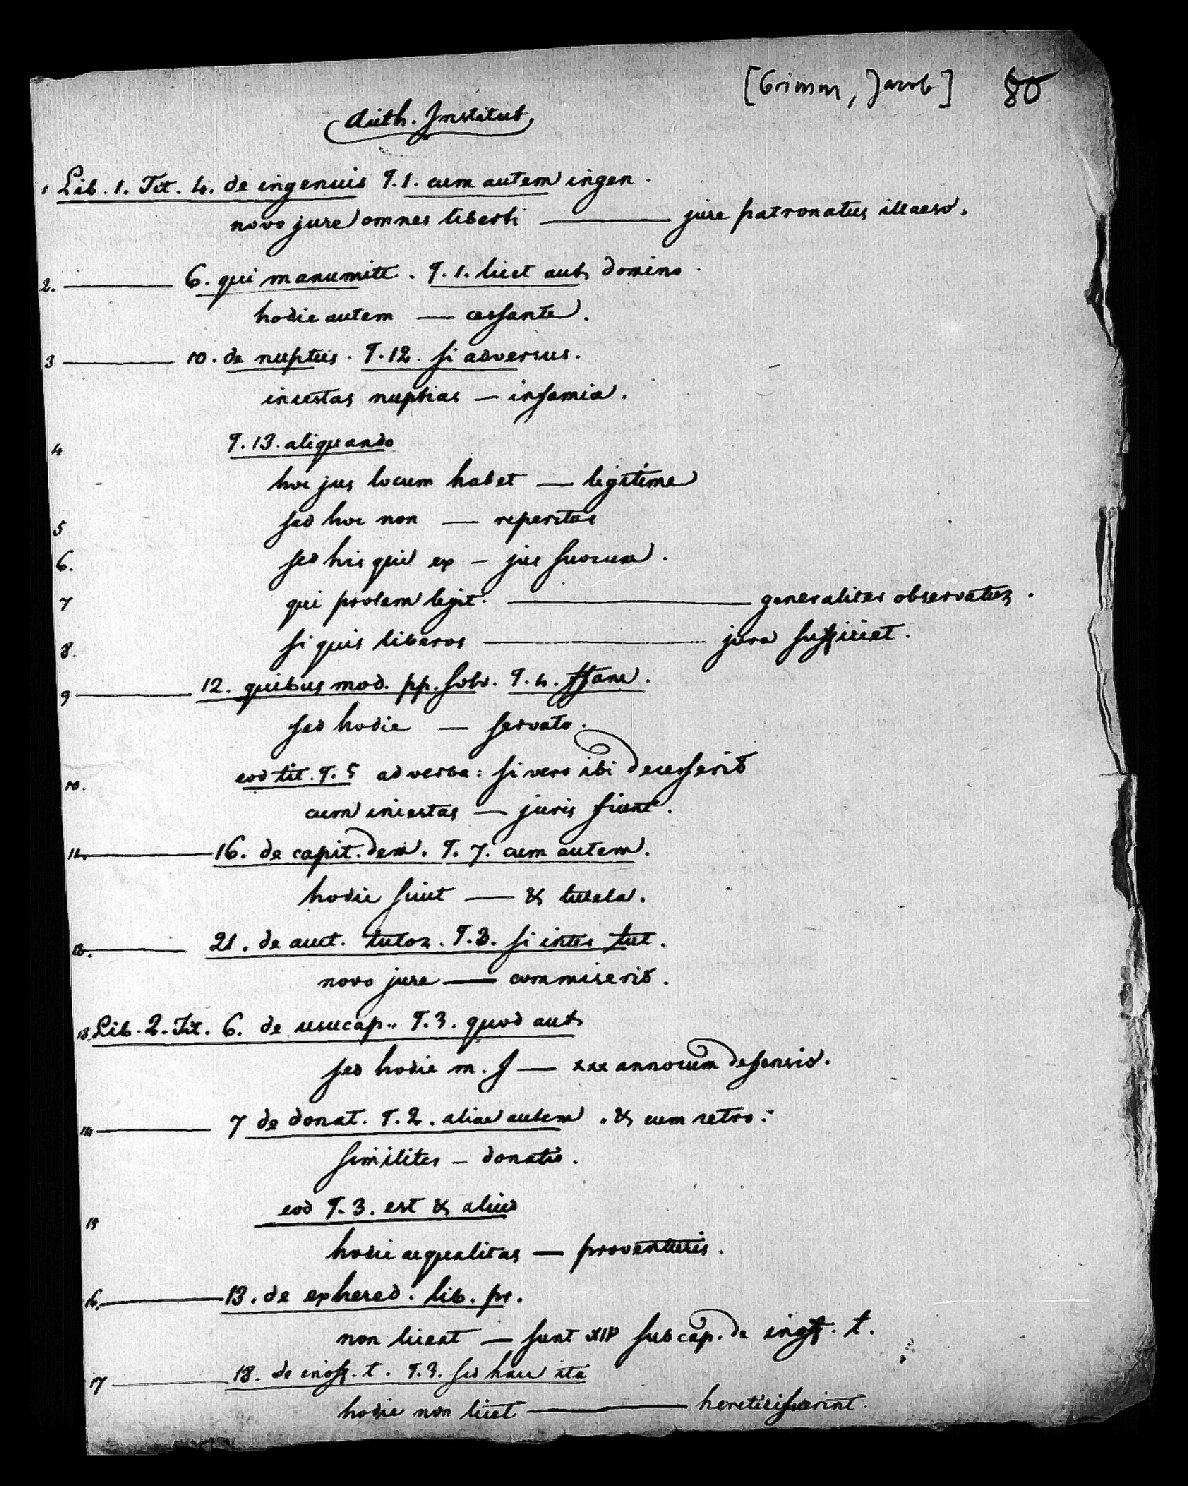 [Grimm, Jacob] 80
Auth. Institut.
1 Lib. 1. Tit. 4. de ingenuis §.1. cum autem ingen.
novo jure omnes liberti —— jure patronatus illaeso.
2. —— 6. qui manumitt. §.1. licet aut domino.
hodie autem — cessante.
3 —— 10. de nuptiis. §.12. si adversus.
incestas nuptias — infamia.
4 §.13. aliquando
hoc jus locum habet — legitime
5 sed hoc non — reperitur
6. sed his qui ex — jus suorum.
7 qui prolem legit. —— generaliter observatur.
8. si quis liberos —— jura sufficiet.
9 —— 12. quibus mod. pp. solv. §.4.
sed hodie — servato.
10. eod tit. §.5 ad verba: si vero ibi decesserit
cum incestas — juris fiunt.
11. —— 16. de capit. dem. §.7. cum autem.
hodie sicut — & tutela.
12. —— 21. de auct. tutor. §.3. si inter tut.
novo jure — commiserit.
13. Lib. 2. Tit. 6. de usucap. §.3. quod aut
sed hodie m. f — xxx annorum defensio.
14 —— 7 de donat. §.2. aliae autem. & cum retro:
similiter — donatio.
15 eod §.3. est & aliud
hodie aequalitas — proventuris.
16. —— 13. de exhered. lib. pr.
non liceat — sunt XIV sub cap. de inoff. t.
17 —— 18. de inoff. t. §.3. sed haec ita
hodie non licet —— heretici fuerint.